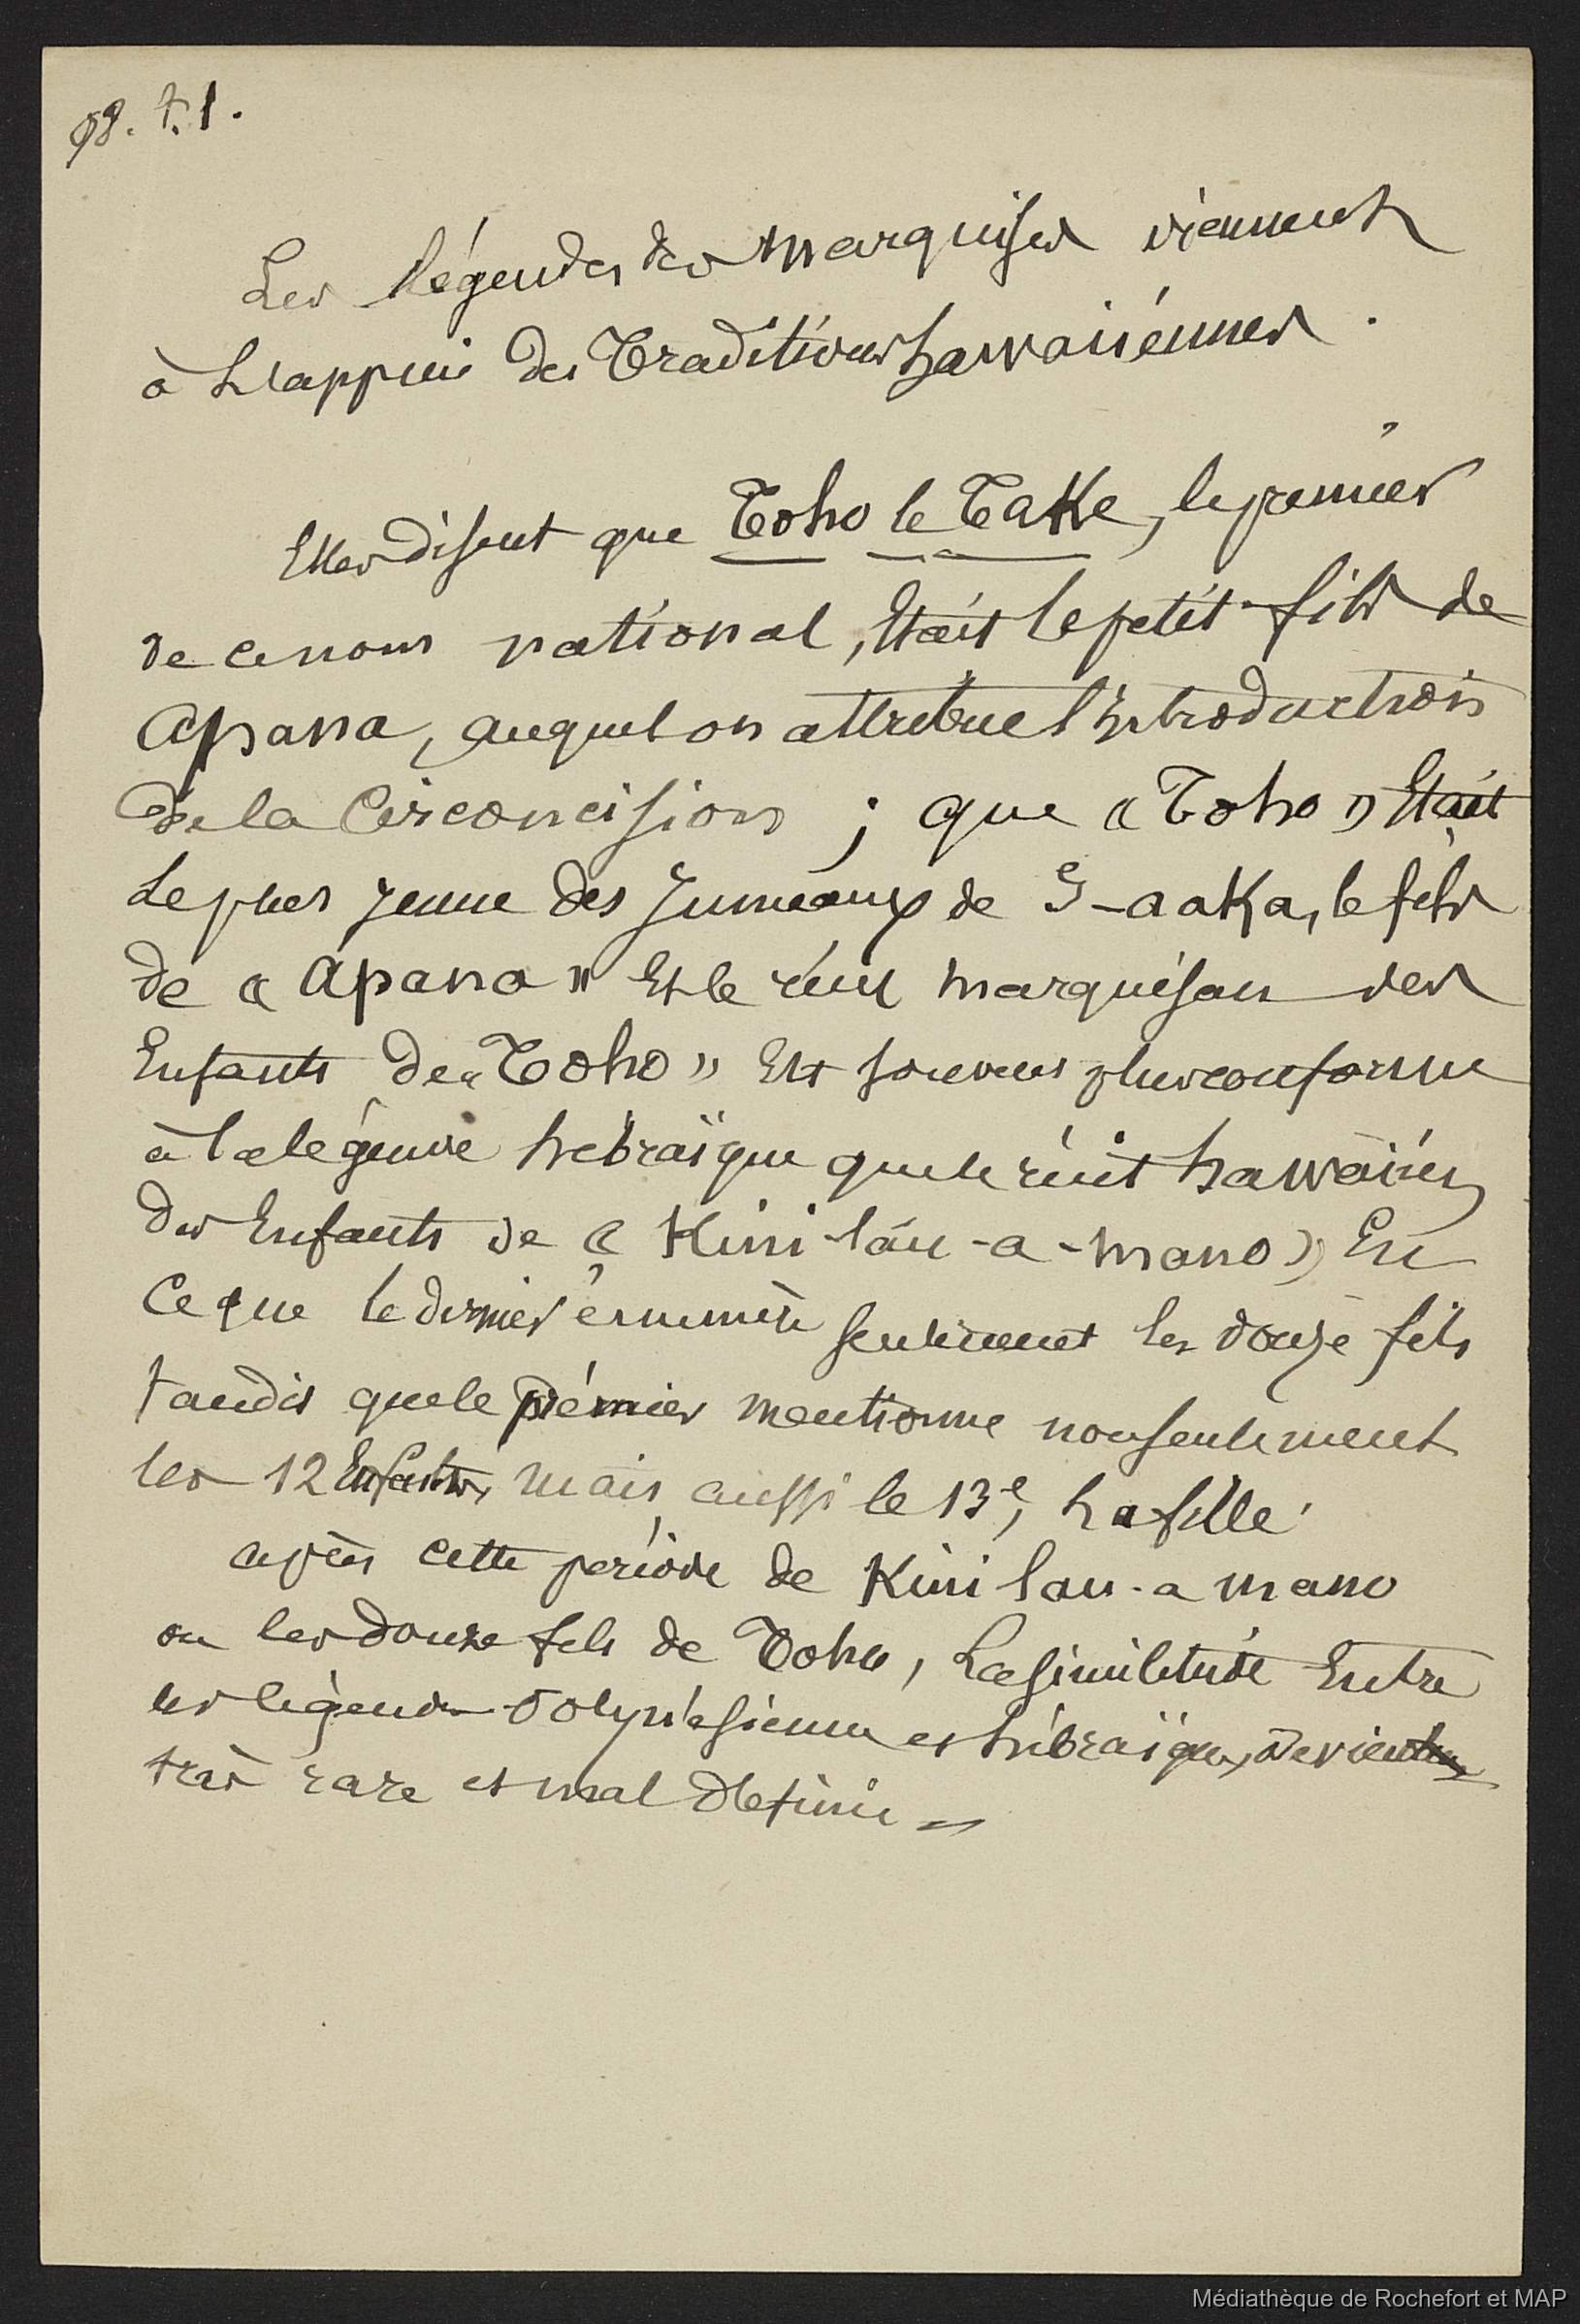 98. t. 1.
Les légendes des Marquises viennent
à l'appui des Traditions hawaiiennes.
Elles disent que Toho le Take, le premier
de ce nom national, était le petit-fils de
Apana, auquel on attribue l'introduction
de la circoncision ; que « Toho » était
le plus jeune des jumeaux de -aaka, le fils
de « Apana » et le récit marquisan des
Enfants de « Toho » est plus conforme
à la légende hébraïque que le récit hawaiien
des Enfants de « Kini-lau-a-mano » En
ce que le dernier énumère seulement les douze fils
tandis que le prémier mentionne non seulement
les 12 Enfants, mais aussi le 13e, la fille.
après cette période de Kini lau-a mano
ou les douze fils de Toho, La similitude Entre
les légendes Polynésienne et hébraïque, devient
très rare et mal définie =
Médiathèque de Rochefort et MAP